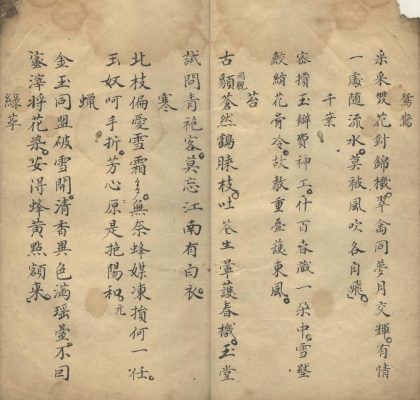 鴛鴦
采采雙花針錦機。翠禽同夢月交輝。有情
一處隨流水。莫被風吹各自飛。
千葉
密攢玉瓣費神工。什百香藏一朵中。雪壓
鮫綃花骨冷。故教重疊護東風。
苔
古貌蒼然鶴膝枝。吐花生暈護春機。玉堂
試問青袍客。莫忘江南有白衣。
寒
北枝偏愛雪霜多。無奈蜂媒凍損何。一任
玉奴呵手折。芳心原是艳陽和。
蠟
金玉同盟破雪開。清香異色滿瑤臺。不因
蜜滓將花染。安得蜂黄點額來。
綠萼